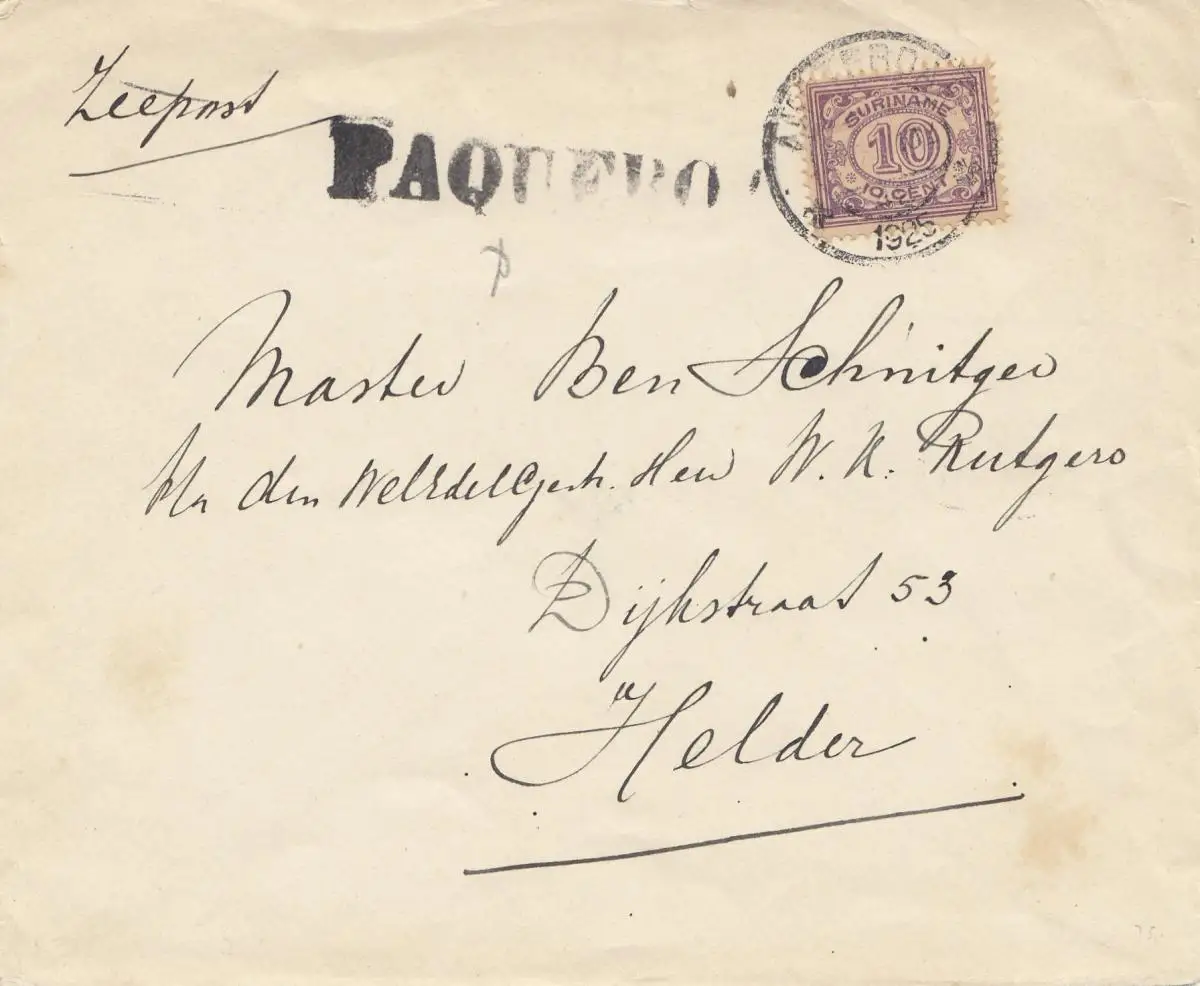 Zeepost
PAQUEBO
SURINAME
10
10 CENT
1925
Master Ben Schnitger
p/a den WelEdelGestr. Heer W. K. Rutgers
Dijkstraat 53
Helder